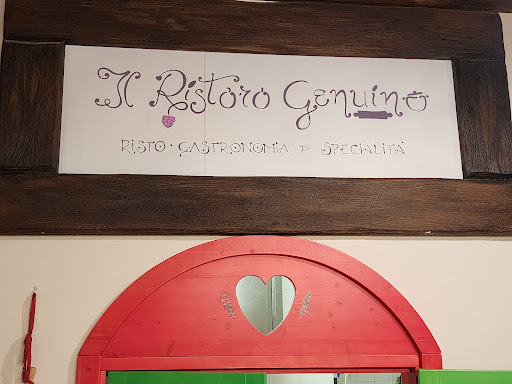 Il Ristoro Genuino
RISTO • GASTRONOMIA DI SPECIALITA'